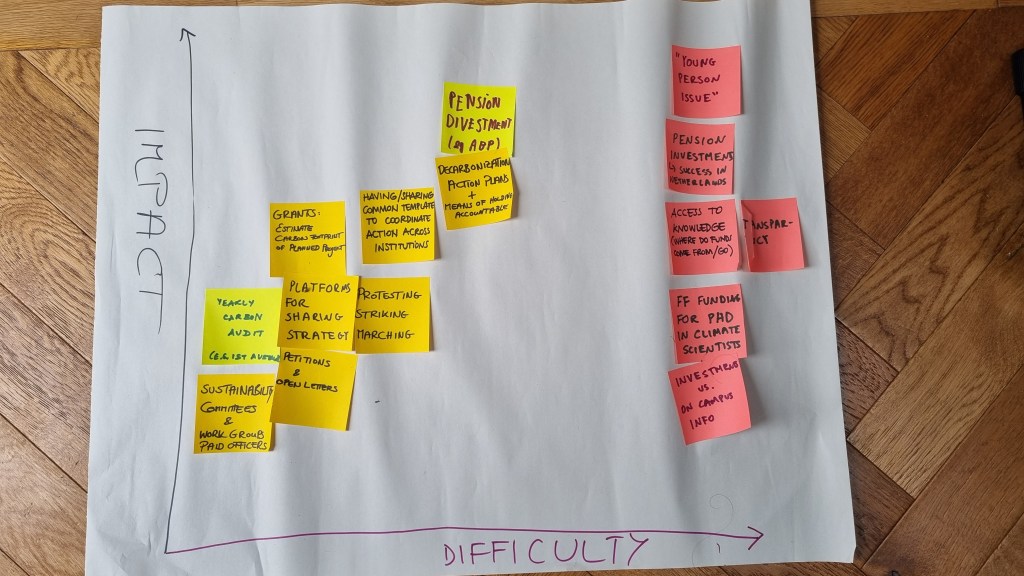 IMPACT
PENSION
DIVESTMENT
(eg ABP)
DECARBONIZATION
ACTION PLANS
+
MEANS OF HOLDING
ACCOUNTABLE
HAVING/SHARING
COMMON TEMPLATE
TO COORDINATE
ACTION ACROSS
INSTITUTIONS
GRANTS:
ESTIMATE
CARBON FOOTPRINT
OF PLANNED PROJECT
PLATFORMS
FOR
SHARING
STRATEGY
PROTESTING
STRIKING
MARCHING
YEARLY
CARBON
AUDIT
(E.G. 1ST
PETITIONS
&
OPEN LETTERS
SUSTAINABILITY
COMMITTEES
&
WORK GROUP
PAID OFFICERS
"YOUNG
PERSON
ISSUE"
PENSION
INVESTMENT
↳ SUCCESS IN
NETHERLANDS
ACCESS TO
KNOWLEDGE
(WHERE DO FUNDS
COME FROM/GO)
TRANSPAR-
FF FUNDING
FOR PHD
IN CLIMATE
SCIENTISTS
INVESTMENT
VS.
ON CAMPUS
INFO
DIFFICULTY